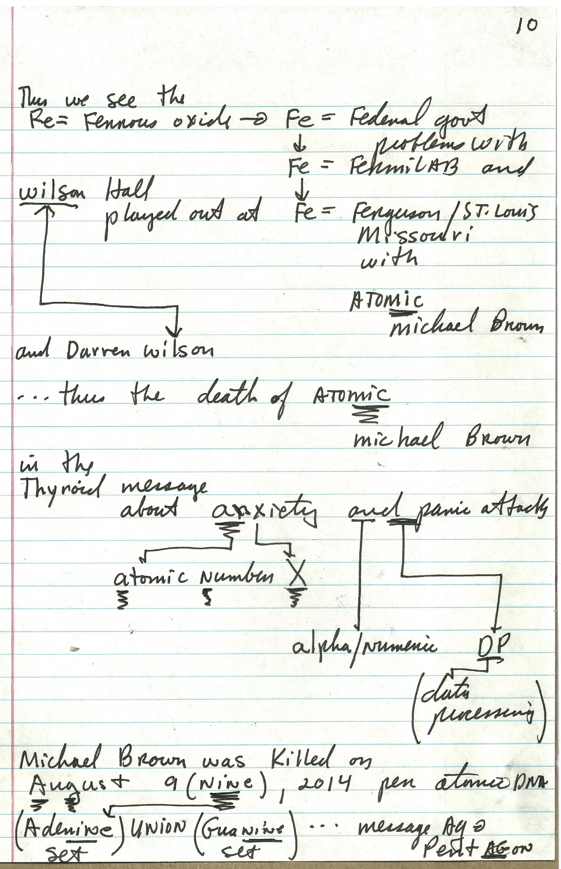 10
Thus we see the
Fe = Ferrous oxide → Fe = Federal govt
problems with
↓
Fe = FermiLAB and
↓
wilson Hall
played out at Fe = Ferguson / ST. Louis
Missouri
with
ATOMIC
michael Brown
and Darren wilson
... thus the death of ATOMIC
michael Brown
in the
Thyroid message
about anxiety and panic attacks
atomic Number X
alpha/numeric DP
(data
processing)
Michael Brown was killed on
August 9 (Nine), 2014 per atomic DNA
(Adenine) UNION (Guanine) ... message Ag →
set set PentAGon